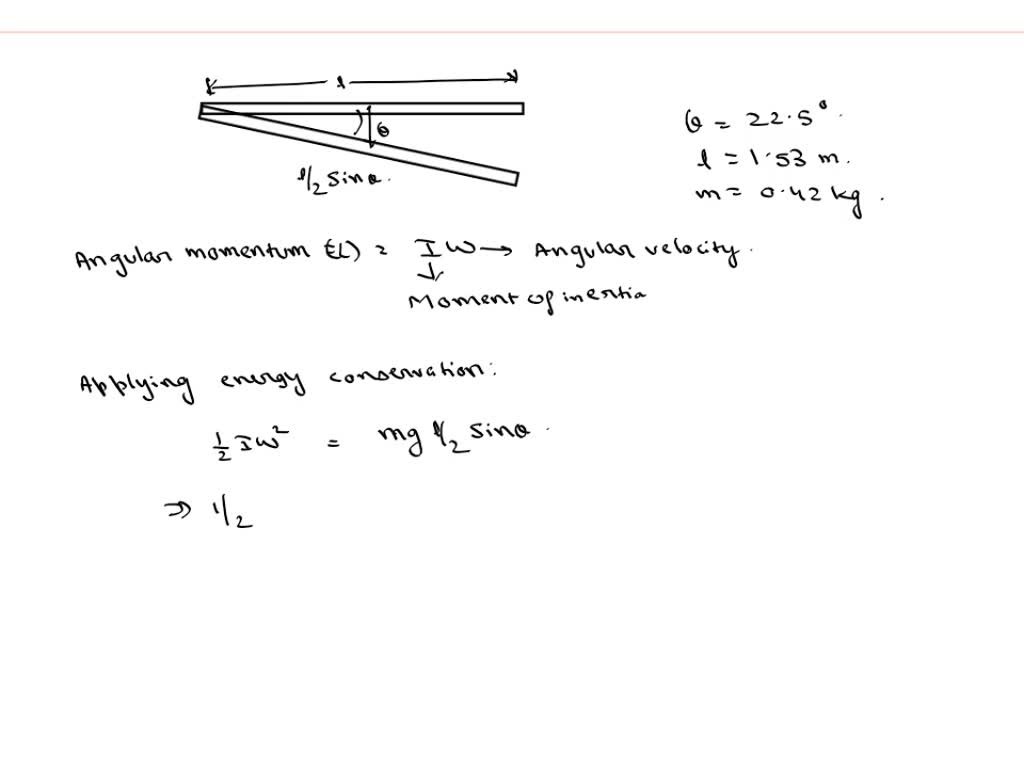 l
θ
l/2 sinθ.
θ = 22.5°.
l = 1.53 m.
m = 0.42 kg.
Angular momentum (L) = Iω → Angular velocity.
↓
Moment of inertia
Applying energy conservation:
1/2 Iω² = mg l/2 sinθ.
⇒ 1/2